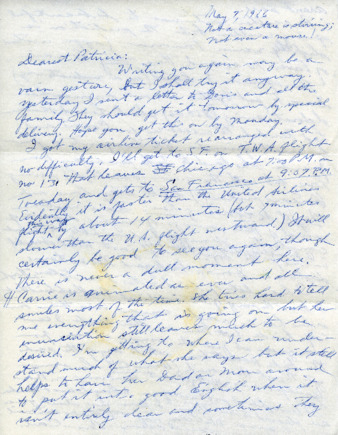 May 7, 1966
Not a creature is stirring;
not even a mouse!
Dearest Patricia:
Writing you again may be a
vain gesture, but I shall try it anyway.
Yesterday I sent a letter to you and all the
family. They should get it tomorrow by special
delivery. Hope you get this on by Monday.
I got my airline ticket rearranged with
no difficulty. I'll get to S.F. on T.W.A. flight
no 131 that leaves Chicago at 7:00 P.M. on
Tuesday and gets to San Francisco at 9:07 P.M.
Evidently it is faster than the United Airlines
flight, by about 14 minutes (but minutes
slower than the U.A. flight westward) It will
certainly be good to see you again, though
there is never a dull moment here.
Carrie is animated as ever and all
smiles most of the time. She tries hard to tell
me everything that is going on, but her
enunciation still leaves much to be
desired. I'm getting to where I can under-
stand much of what she says but it still
helps to have her Dad or Mom around
to put it into good English when it
isn't entirely clear and sometimes they